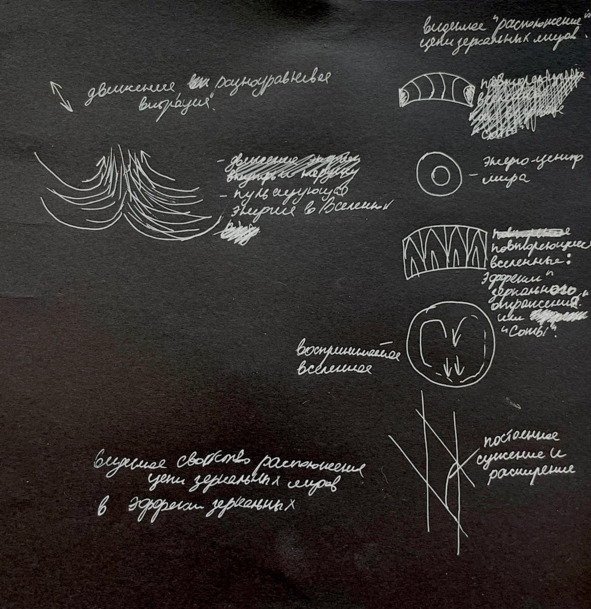 видимое "расположение"
цепи зеркальных миров.
движение разноуравневая
вибрация"
- пульсирующая
энергия во Вселенных
- энерго-центр
мира
повторяющиеся
вселенные:
эффект"
зеркального
отражения"
или
"соты".
воспринимаемая
вселенная
постоянное
сужение и
расширение
видимое свойство расположения
цепи зеркальных миров
в эффекте зеркальных